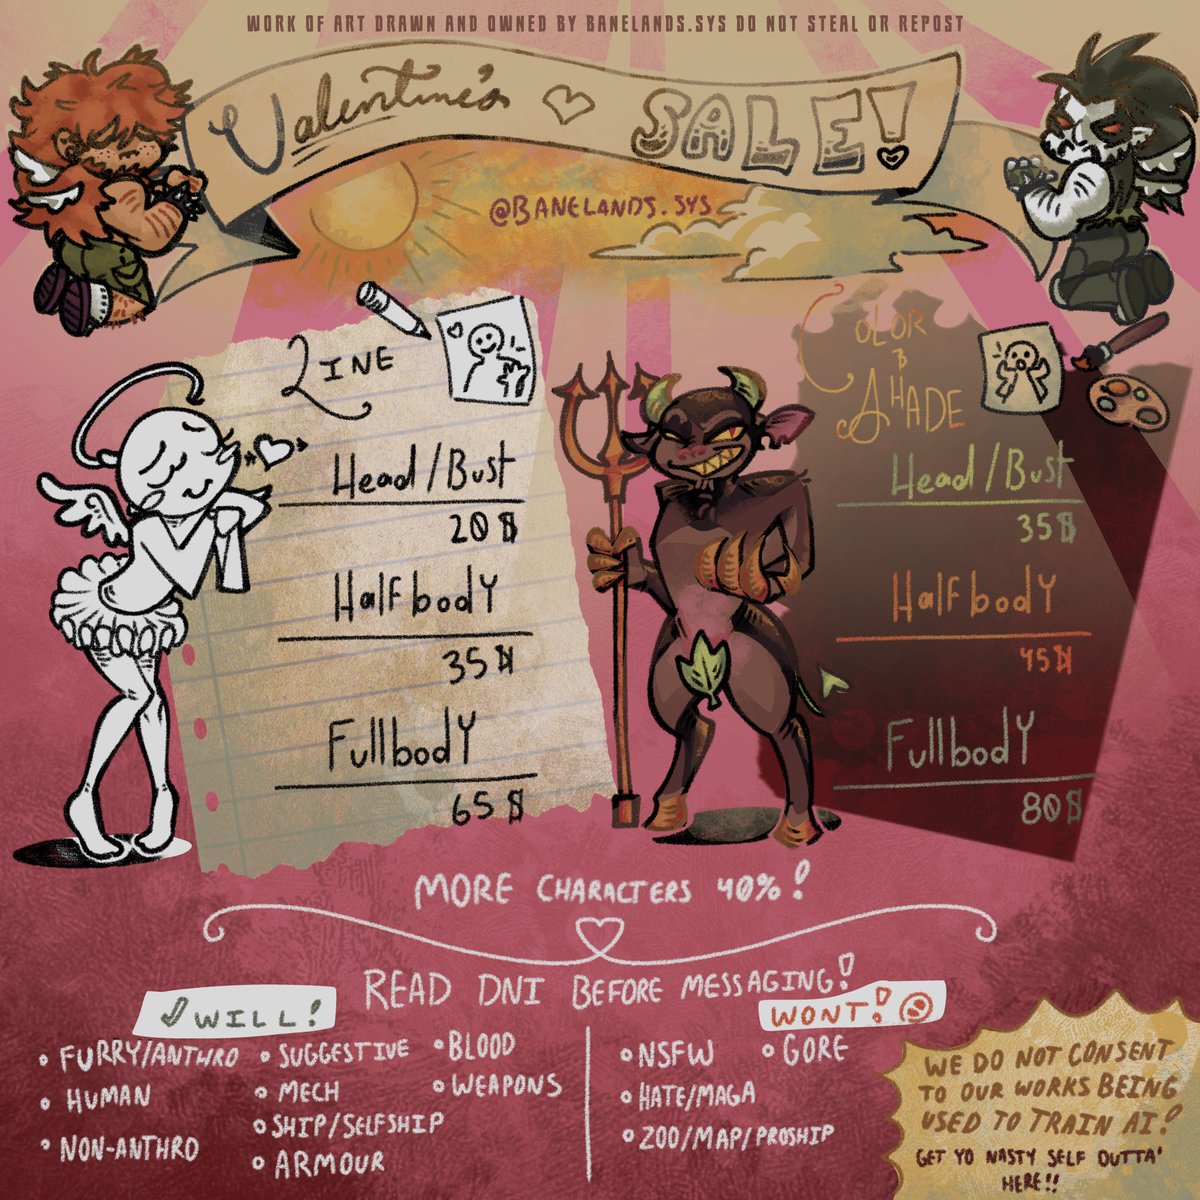 WORK OF ART DRAWN AND OWNED BY BANELANDS.SYS DO NOT STEAL OR REPOST
Valentine's SALE!
@BANELANDS.SYS
LINE
Head/Bust
20$
Halfbody
35$
Fullbody
65$
COLOR
&
SHADE
Head/Bust
35$
Halfbody
45$
Fullbody
80$
MORE CHARACTERS 40%!
READ DNI BEFORE MESSAGING!
WILL!
• FURRY/ANTHRO
• HUMAN
• NON-ANTHRO
• SUGGESTIVE
• MECH
• SHIP/SELFSHIP
• ARMOUR
• BLOOD
• WEAPONS
WONT!
• NSFW
• HATE/MAGA
• ZOO/MAP/PROSHIP
• GORE
WE DO NOT CONSENT
TO OUR WORKS BEING
USED TO TRAIN AI!
GET YO NASTY SELF OUTTA'
HERE!!